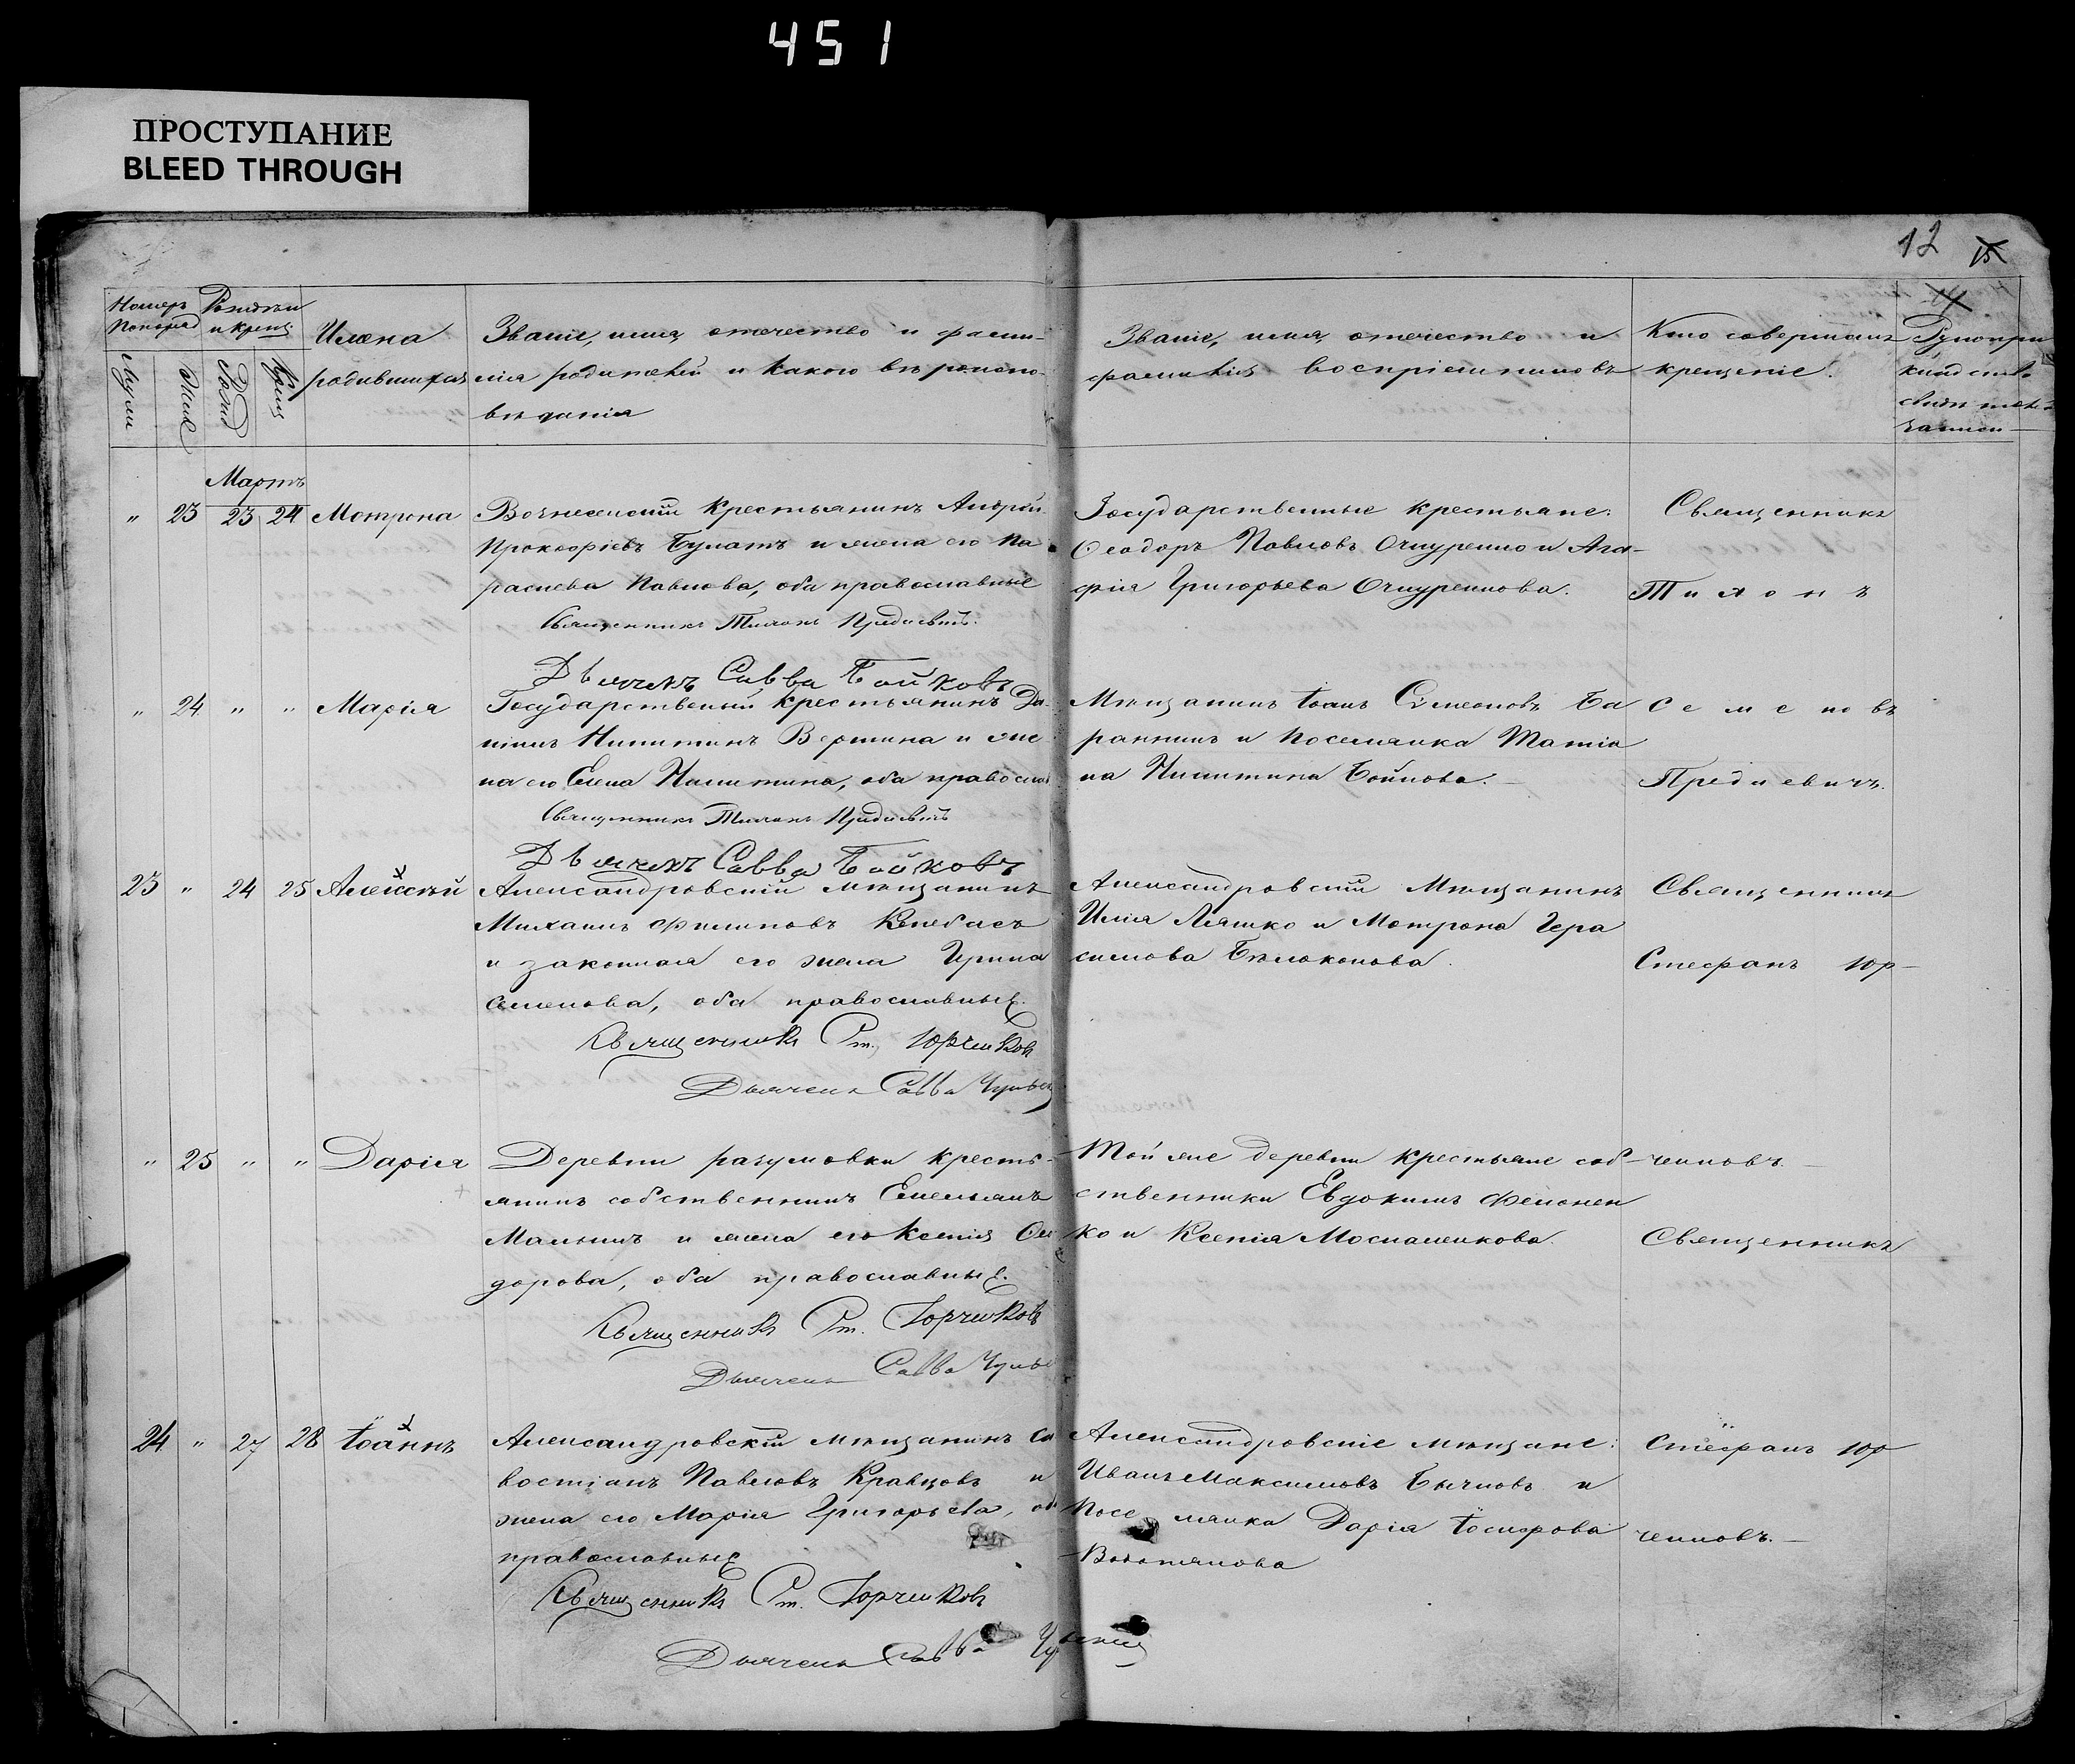 451
ПРОСТУПАНИЕ
BLEED THROUGH
12 15
Номеръ
Рожденія и крещ.
Имена родившихся
Званіе, имя, отечество и фами-
лія родителей и какого вѣроиспо-
вѣданія
Званіе, имя, отечество и
фамилія воспріемниковъ
Кто совершалъ
крещеніе.
Рукопри
кладство
свидѣтелей
записи
Мартъ
" 23 23 24 Мотрона
Вознесенскій крестьянинъ Андрей
Прокофіевъ Булатъ и жена его Па
раскева Павлова, оба православные
Священникъ Тихонъ Предіевичъ.
Дьячекъ Савва Бойковъ
Государственные крестьяне:
Ѳеодоръ Павловъ и Ага-
фія Григорьева
Священникъ
Тихонъ
" 24 " " Марія
Государственый крестьянинъ Да-
ніилъ Никитинъ Вертина и же
на его Елена Никитина, оба православ
Священникъ Тихонъ Предіевичъ
Дьячекъ Савва Бойковъ
Мѣщанинъ Іоанъ Сѵмеоновъ Ба
ранникъ и поселянка Татіа
на Никитина Бойкова.
Семеновъ
Предіевичъ.
23 " 24 25 Алексѣй
Александровскій мѣщанинъ
Михаилъ Филиповъ Кобебасъ
и законная его жена Ирина
Семенова, оба православные.
Священникъ Ст. Юрченковъ
Дьячекъ Савва
Александровскій Мѣщанинъ
Илія Ляшко и Мотрона Гера
симова Бѣлоконова.
Священникъ
Стефанъ Юр-
" 25 " " Дарія
Деревни разумовки кресть-
янинъ собственникъ Емельянъ
Малышъ и жена его Ксенія Ѳео
дорова, оба православные.
Священникъ Ст. Юрченковъ
Дьячекъ Савва
Той же деревни крестьяне соб-
ственники Евдокимъ Филонен
ко и Ксенія Москаленкова.
ченковъ.
Священникъ
24 " 27 28 Іоаннъ
Александровскій мѣщанинъ Се
востіанъ Павловъ Кравцовъ и
жена его Марія Григорьева, оба
православные
Священникъ Ст. Юрченковъ
Дьячекъ Савва
Александровскіе мѣщане:
Иванъ Максимовъ Бычковъ и
поселянка Дарія Іосифова
Стефанъ Юр
ченковъ.